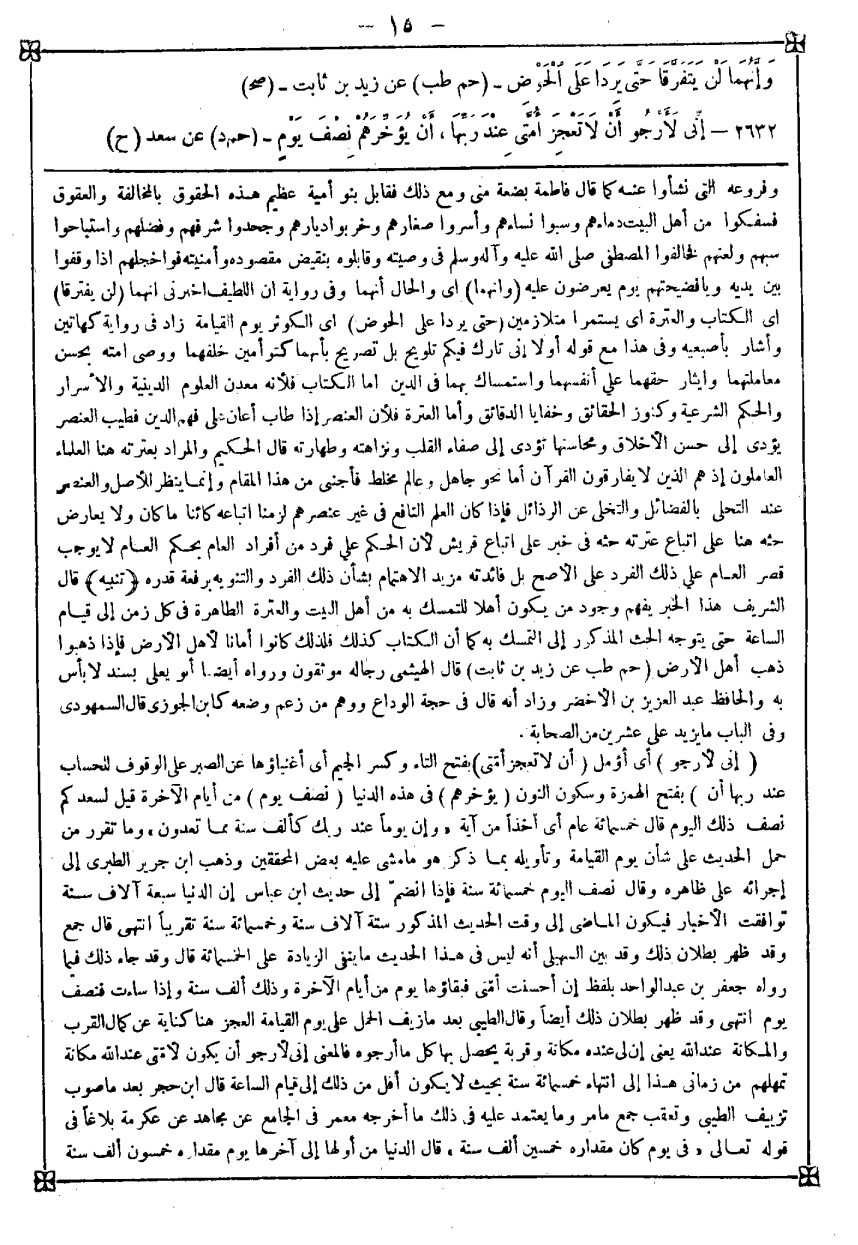 - ١٥ --
وَإِنَّهُمَا لَنْ يَتَفَرَّقَا حَتَّى يَرِدَا عَلَىَّ الْحَوْضَ ـ (حم طب) عن زيد بن ثابت ـ (صح)
٢٦٣٢ — إِنِّى لَأَرْجُو أَنْ لَا تَعْجِزَ أُمَّتِى عِنْدَ رَبِّهَا ، أَنْ يُؤَخِّرَهُمْ نِصْفَ يَوْمٍ ـ (حم د) عن سعد (ح)
وفروعه التى نشأوا عنه كما قال فاطمة بضعة منى ومع ذلك فقابل بنو أمية عظيم هذه الحقوق بالمخالفة والعقوق
فسفكوا من أهل البيت دماءهم وسبوا نساءهم وأسروا صغارهم وخربوا ديارهم وجحدوا شرفهم وفضلهم واستباحوا
سبهم ولعنهم فخالفوا المصطفى صلى الله عليه وآله وسلم فى وصيته وقابلوه بنقيض مقصوده وأمنيته فواخجلهم اذا وقفوا
بين يديه ويافضيحتهم يوم يعرضون عليه (وانهما) اى والحال أنهما وفى رواية ان اللطيف اخبرنى انهما (لن يفترقا)
اى الكتاب والعترة اى يستمرا متلازمين (حتى يردا على الحوض) اى الكوثر يوم القيامة زاد فى رواية كهاتين
وأشار بأصبعيه وفى هذا مع قوله أولا إنى تارك فيكم تلويح بل تصريح بأنهما كتوأمين خلفهما ووصى امته بحسن
معاملتهما وايثار حقهما على أنفسهما واستمساك بهما فى الدين اما الكتاب فلأنه معدن العلوم الدينية والأسرار
والحكم الشرعية وكنوز الحقائق وخفايا الدقائق وأما العترة فلأن العنصر إذا طاب أعان على فهم الدين فطيب العنصر
يؤدى إلى حسن الأخلاق ومحاسنها تؤدى إلى صفاء القلب ونزاهته وطهارته قال الحكيم والمراد بعترته هنا العلماء
العاملون إذ هم الذين لا يفارقون القرآن أما نحو جاهل وعالم مخلط فأجنبى من هذا المقام وإنما ينظر للأصل والعنصر
عند التحلى بالفضائل والتخلى عن الرذائل فإذا كان العلم النافع فى غير عنصرهم لزمنا اتباعه كائنا ما كان ولا يعارض
حثه هنا على اتباع عترته حثه فى خبر على اتباع قريش لأن الحكم على فرد من أفراد العام بحكم العام لا يوجب
قصر العام على ذلك الفرد على الأصح بل فائدته مزيد الاهتمام بشأن ذلك الفرد والتنويه برفعة قدره ﴿تنبيه﴾ قال
الشريف هذا الخبر يفهم وجود من يكون أهلا للتمسك به من أهل البيت والعترة الطاهرة فى كل زمن إلى قيام
الساعة حتى يتوجه الحث المذكور إلى التمسك به كما أن الكتاب كذلك فلذلك كانوا أمانا لأهل الأرض فإذا ذهبوا
ذهب أهل الأرض (حم طب عن زيد بن ثابت) قال الهيثمى رجاله موثقون ورواه أيضا أبو يعلى بسند لا بأس
به والحافظ عبد العزيز بن الأخضر وزاد أنه قال فى حجة الوداع ووهم من زعم وضعه كابن الجوزى قال السمهودى
وفى الباب ما يزيد على عشرين من الصحابة .
( إنى لأرجو ) أى أؤمل ( أن لا تعجز أمتى) بفتح التاء وكسر الجيم أى أغنياؤها عن الصبر على الوقوف للحساب
عند ربها أن ) بفتح الهمزة وسكون النون ( يؤخرهم ) فى هذه الدنيا ( نصف يوم ) من أيام الآخرة قيل لسعد كم
نصف ذلك اليوم قال خمسمائة عام أى أخذاً من آية « وإن يوماً عند ربك كألف سنة مما تعدون » وما تقرر من
حمل الحديث على شأن يوم القيامة وتأويله بما ذكر هو مامشى عليه بعض المحققين وذهب ابن جرير الطبرى إلى
إجرائه على ظاهره وقال نصف اليوم خمسمائة سنة فإذا انضمّ إلى حديث ابن عباس إن الدنيا سبعة آلاف سنة
توافقت الأخبار فيكون الماضى إلى وقت الحديث المذكور ستة آلاف سنة وخمسمائة سنة تقريباً انتهى قال جمع
وقد ظهر بطلان ذلك وقد بين السهيلى أنه ليس فى هذا الحديث ماينفى الزيادة على الخمسمائة قال وقد جاء ذلك فيما
رواه جعفر بن عبد الواحد بلفظ إن أحسنت أمتى فبقاؤها يوم من أيام الآخرة وذلك ألف سنة وإذا ساءت فنصف
يوم انتهى وقد ظهر بطلان ذلك أيضاً وقال الطيبى بعد مازيف الحمل على يوم القيامة العجز هنا كناية عن كمال القرب
والمكانة عند الله يعنى إن لى عنده مكانة وقربة يحصل بها كل ما أرجوه فالمعنى إنى لأرجو أن يكون لأمتى عند الله مكانة
تمهلهم من زمانى هذا إلى انتهاء خمسمائة سنة بحيث لا يكون أقل من ذلك إلى قيام الساعة قال ابن حجر بعد ماصوب
تزييف الطيبى وتعقب جمع مامر وما يعتمد عليه فى ذلك ما أخرجه معمر فى الجامع عن مجاهد عن عكرمة بلاغاً فى
قوله تعالى « فى يوم كان مقداره خمسين ألف سنة » قال الدنيا من أولها إلى آخرها يوم مقداره خمسون ألف سنة